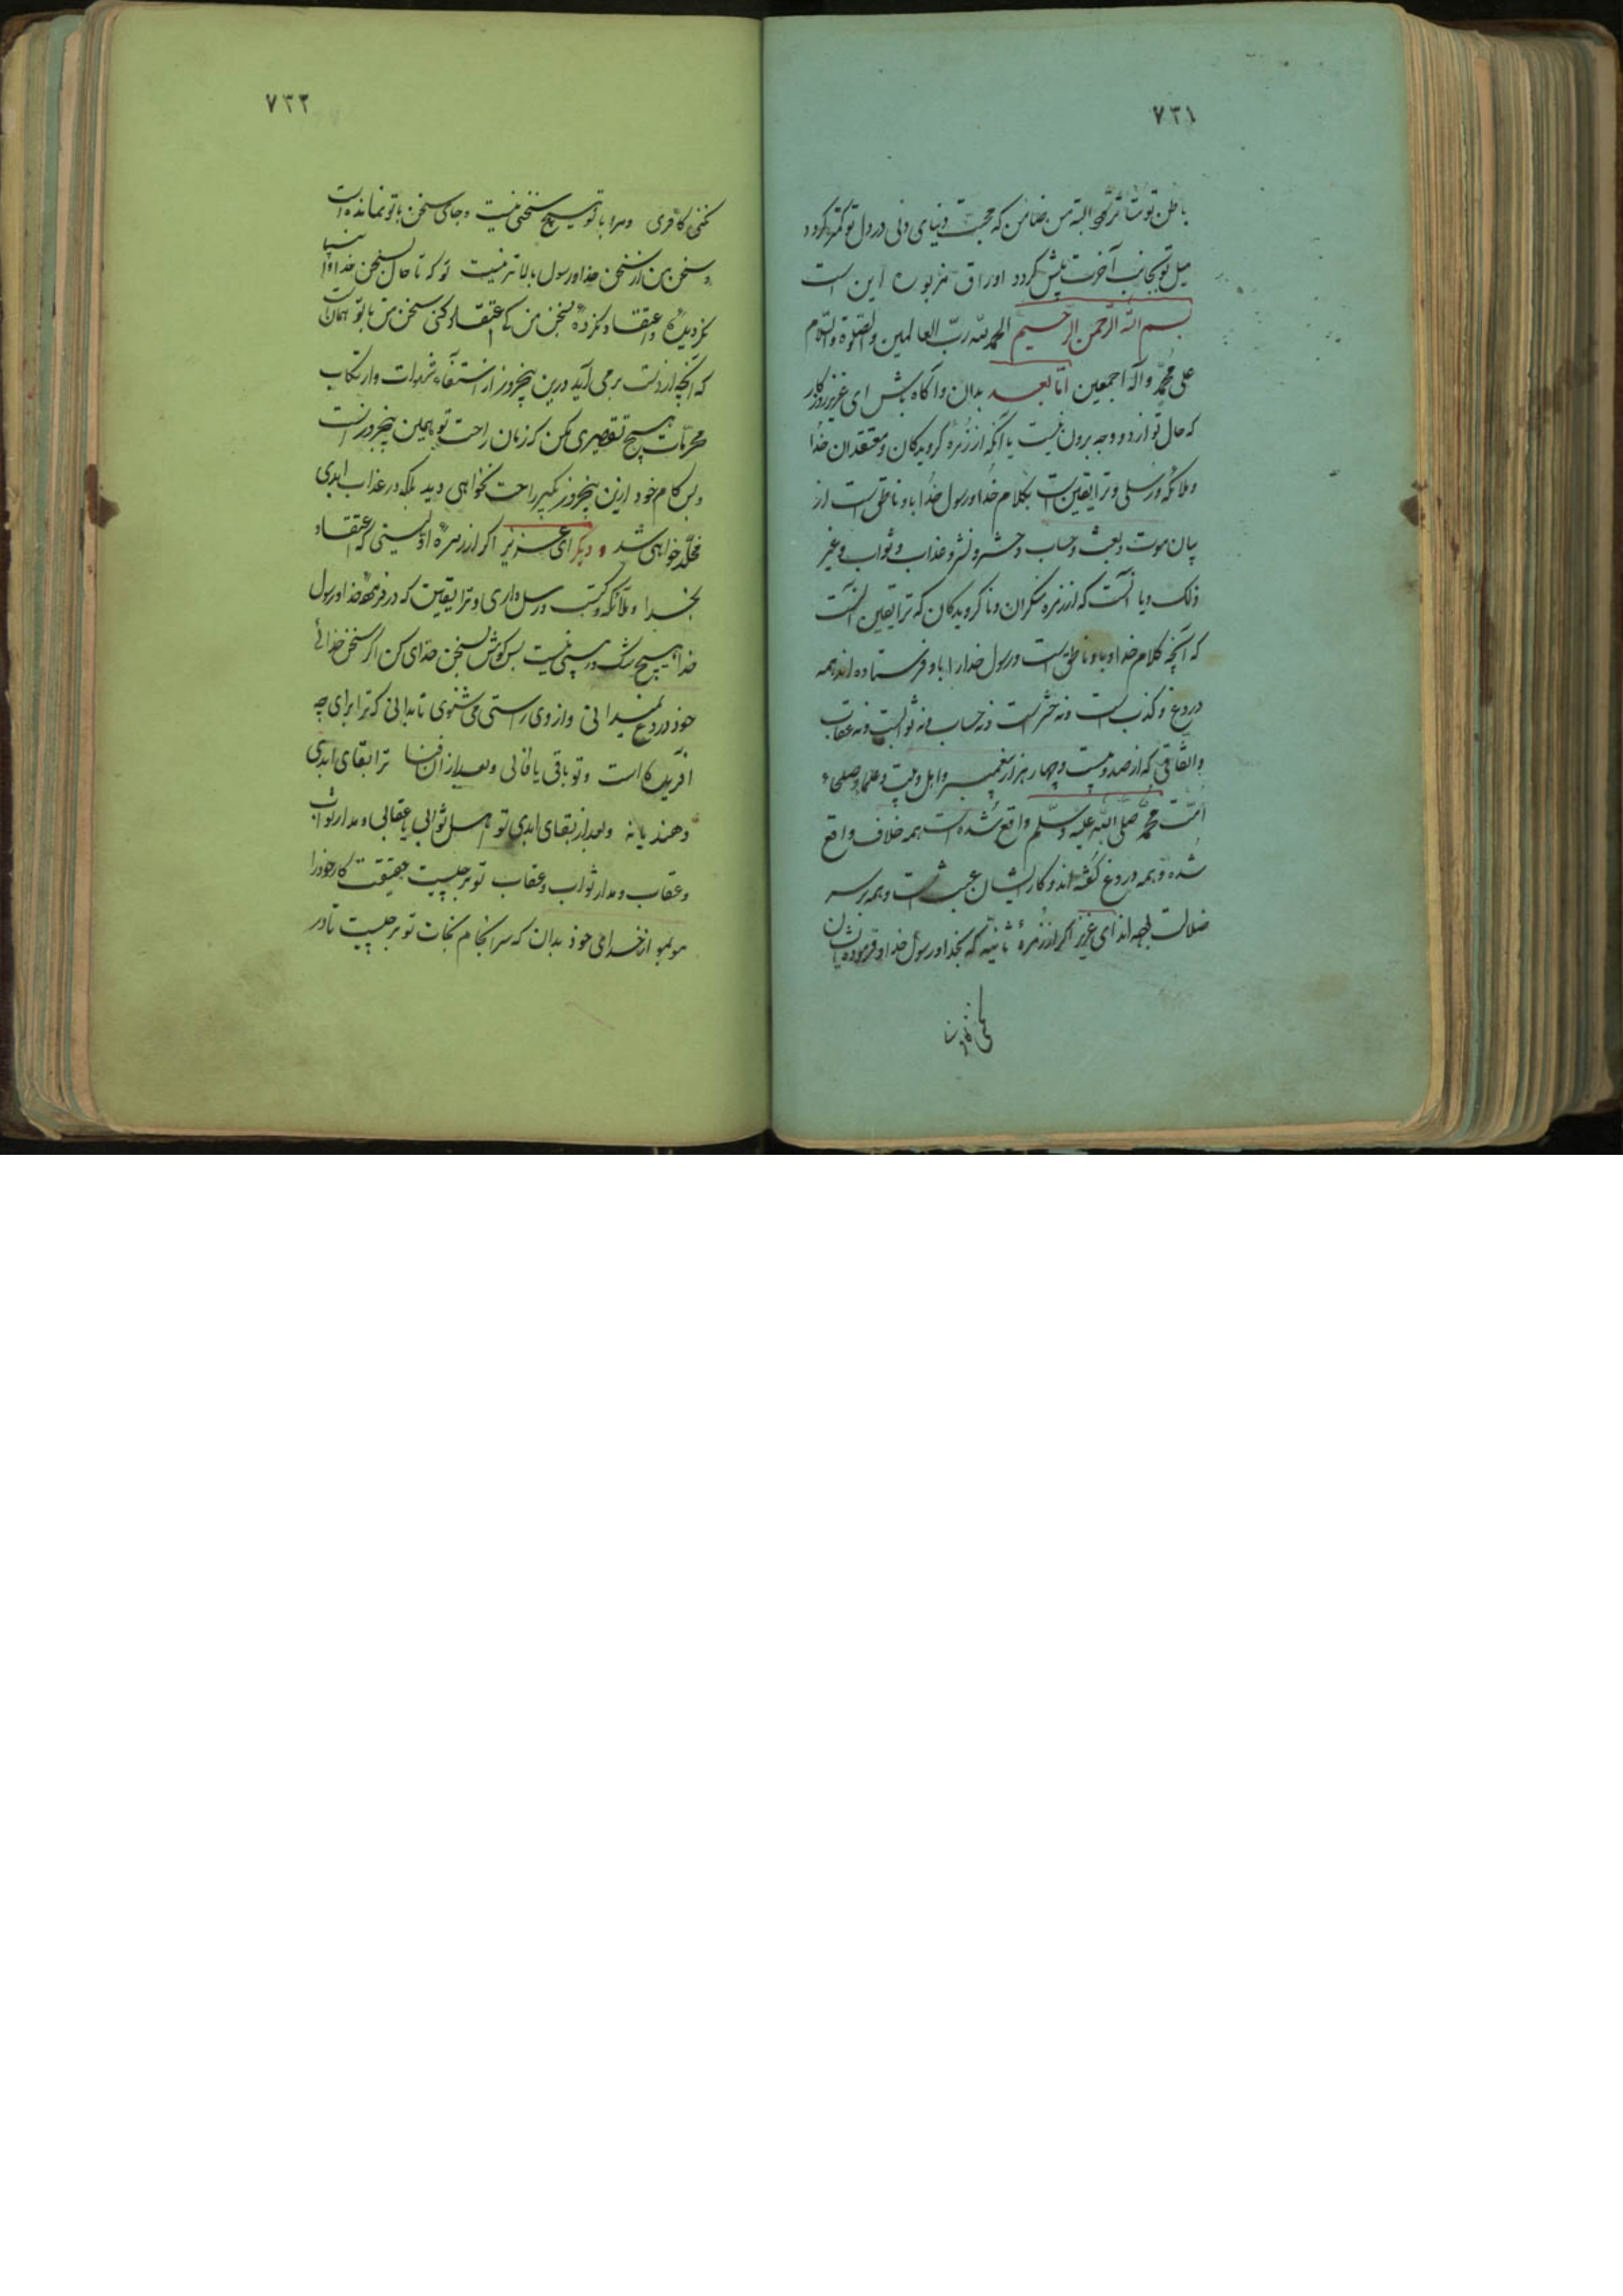 ٧٣١
باطن تو متأثر شود البته من ضامن که محبت دنیای دنی در دل تو کمتر کردد و
میل تو بجانب آخرت بیش کردد اوراق مزبوره این است
بسم الله الرحمن الرحیم الحمد لله رب العالمین والصلوة والسلام
علی محمد وآله اجمعین اما بعد بدان وآکاه باش ای عزیز روزکار
که حال تو از دو وجه برون نیست یا آنکه از زمره کرویدکان ومعتقدان خدا
وملائکه ورسلی وترا یقین است بکلام خدا ورسول خدا باو ناطق است از
بیان موت وبعث وحساب وحشر ونشر وعذاب وثواب وغیر
ذلک ویا آنست که از زمره منکران وناکرویدکان که ترا یقین آنست
که آنچه کلام خدا وباو ناطق است ورسول خدا را باو فرستاده اند همه
دروغ وکذب است ونه حشر است ونه حساب ونه ثوابست ونه عقاب
واتفاقی که از صد وبیست وچهار هزار پیغمبر واهل بیت وعلما وصلحاء
امت محمد صلی الله علیه وسلم واقع شده است همه خلاف واقع
شده وهمه دروغ کفته اند وکار ایشان عبث است وهمه بر سر
ضلالت بوده اند ای عزیز اکر از زمرۀ ثانیه که بخدا ورسول خدا وفرموده ایشان
٧٣٢
کنی کافری ومرا با تو هیچ سخنی نیست وجای سخن با تو نمانده است
وسخن من از سخن خدا ورسول بالاتر نیست تو که تا حال بسخن خدا وانبیا
نکرویده واعتقاد نکرده بسخن من کی اعتقاد کنی سخن من با تو همانست
که آنچه از دست برمی آید درین پنجروز از استیفاء شهوات وارتکاب
محرمات هیچ تقصیری مکن که زمان راحت تو همین پنجروز است
وبس کام خود ازین پنجروز بکیر راحت نخواهی دید بلکه در عذاب ابدی
مخلد خواهی شد ودیکر ای عزیز اکر از زمره اولیستی که اعتقاد
بخدا وملائکه وکتب ورسل داری وترا یقین که در فرموده خدا ورسول
خدا هیچ شک نیست پس کوش بسخن خدای کن اکر سخن خدائے
خود دروغ نمیدانی واز وی راستی می شنوی تا بدانی که ترا برای چه
آفریده است وتو باقی یا فانی وبعد از آن فنا ترا بقای ابدی
دهند یا نه وبعد از بقای ابدی تو اهل ثوابی یا عقابی ومدار ثواب
وعقاب ومدار ثواب وعقاب تو بر چیست حقیقت کار خود را
موبمو از خدای خود بدان که سرانجام نجات تو بر چیست تا در